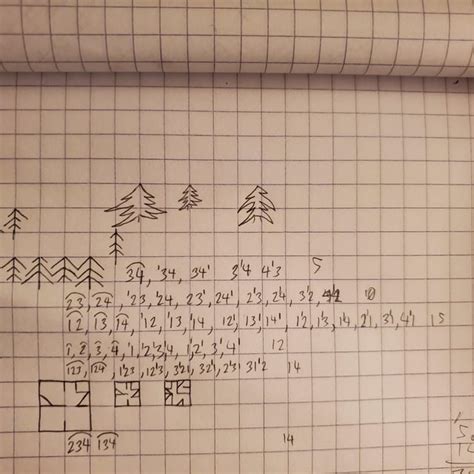 3͡4, '34, 34' 3'4 4'3 5
2͡3, 2͡4, '23, '24, 23', 24', 2'3, 2'4, 3'2, 10
1͡2, 1͡3, 1͡4, '12, '13, '14, 12', 13', 14', 1'2, 1'3, 1'4, 2'1, 3'1, 4'1 15
1̄, 2̄, 3̄, 4̄, '1, '2, '3, '4, 1', 2', 3', 4' 12
1͡23, 1͡24, 1'23, 12'3, 3'21, 32'1, 2'31 31'2 14
2͡34 1͡34 14